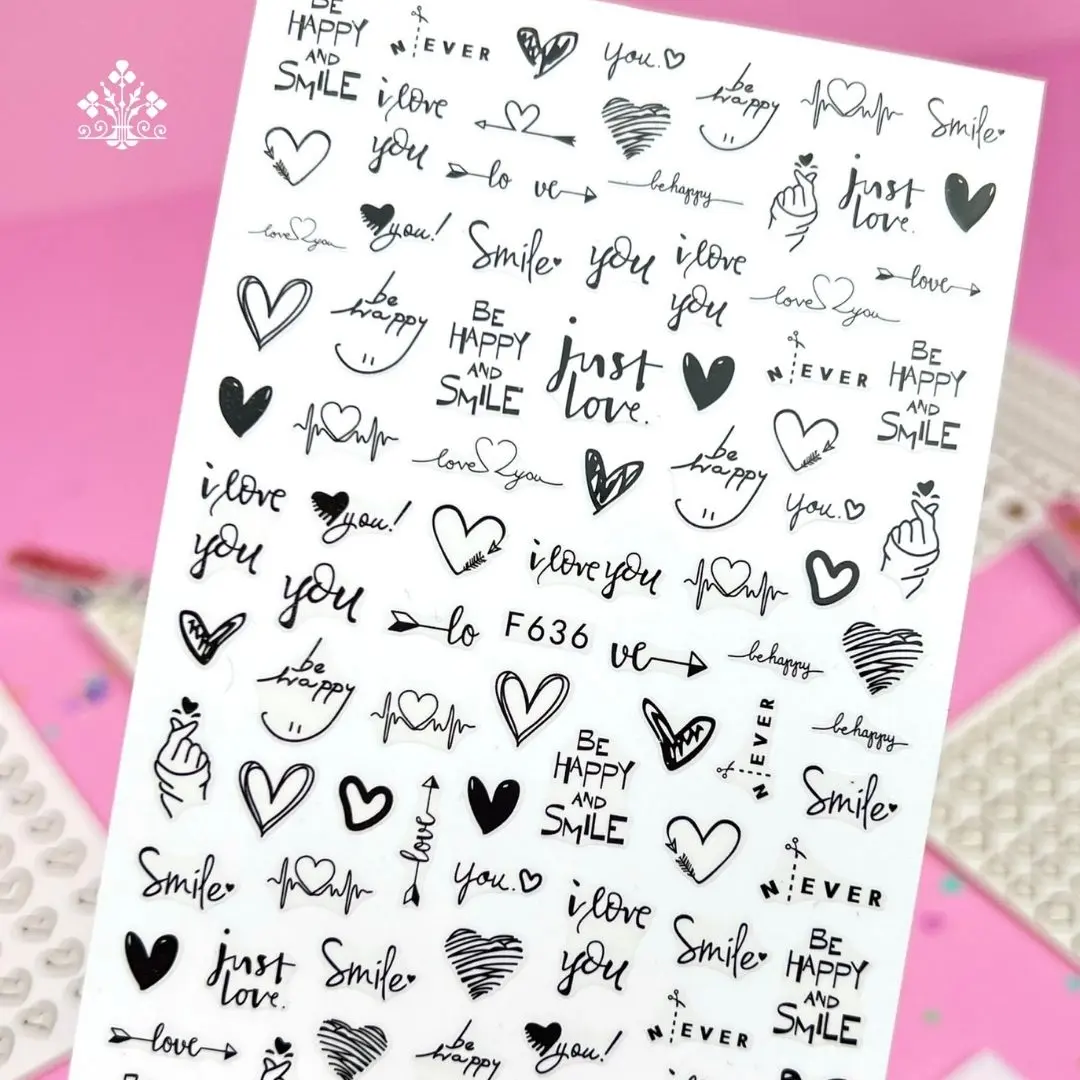 BE
HAPPY
AND
SMILE
N EVER
you.
be
happy
Smile
i love
you
lo ve
be happy
just
love.
love you
you!
Smile
you
i love
you
love you
love
be
happy
BE
HAPPY
AND
SMILE
just
love.
N EVER
BE
HAPPY
AND
SMILE
love you
be
happy
you.
i love
you
you!
i love you
you
lo
F636
ve
be happy
be
happy
N EVER
be happy
BE
HAPPY
AND
SMILE
Smile
love
Smile
you.
N EVER
i love
you
just
love.
Smile
Smile
BE
HAPPY
AND
SMILE
love
be
happy
you!
N EVER